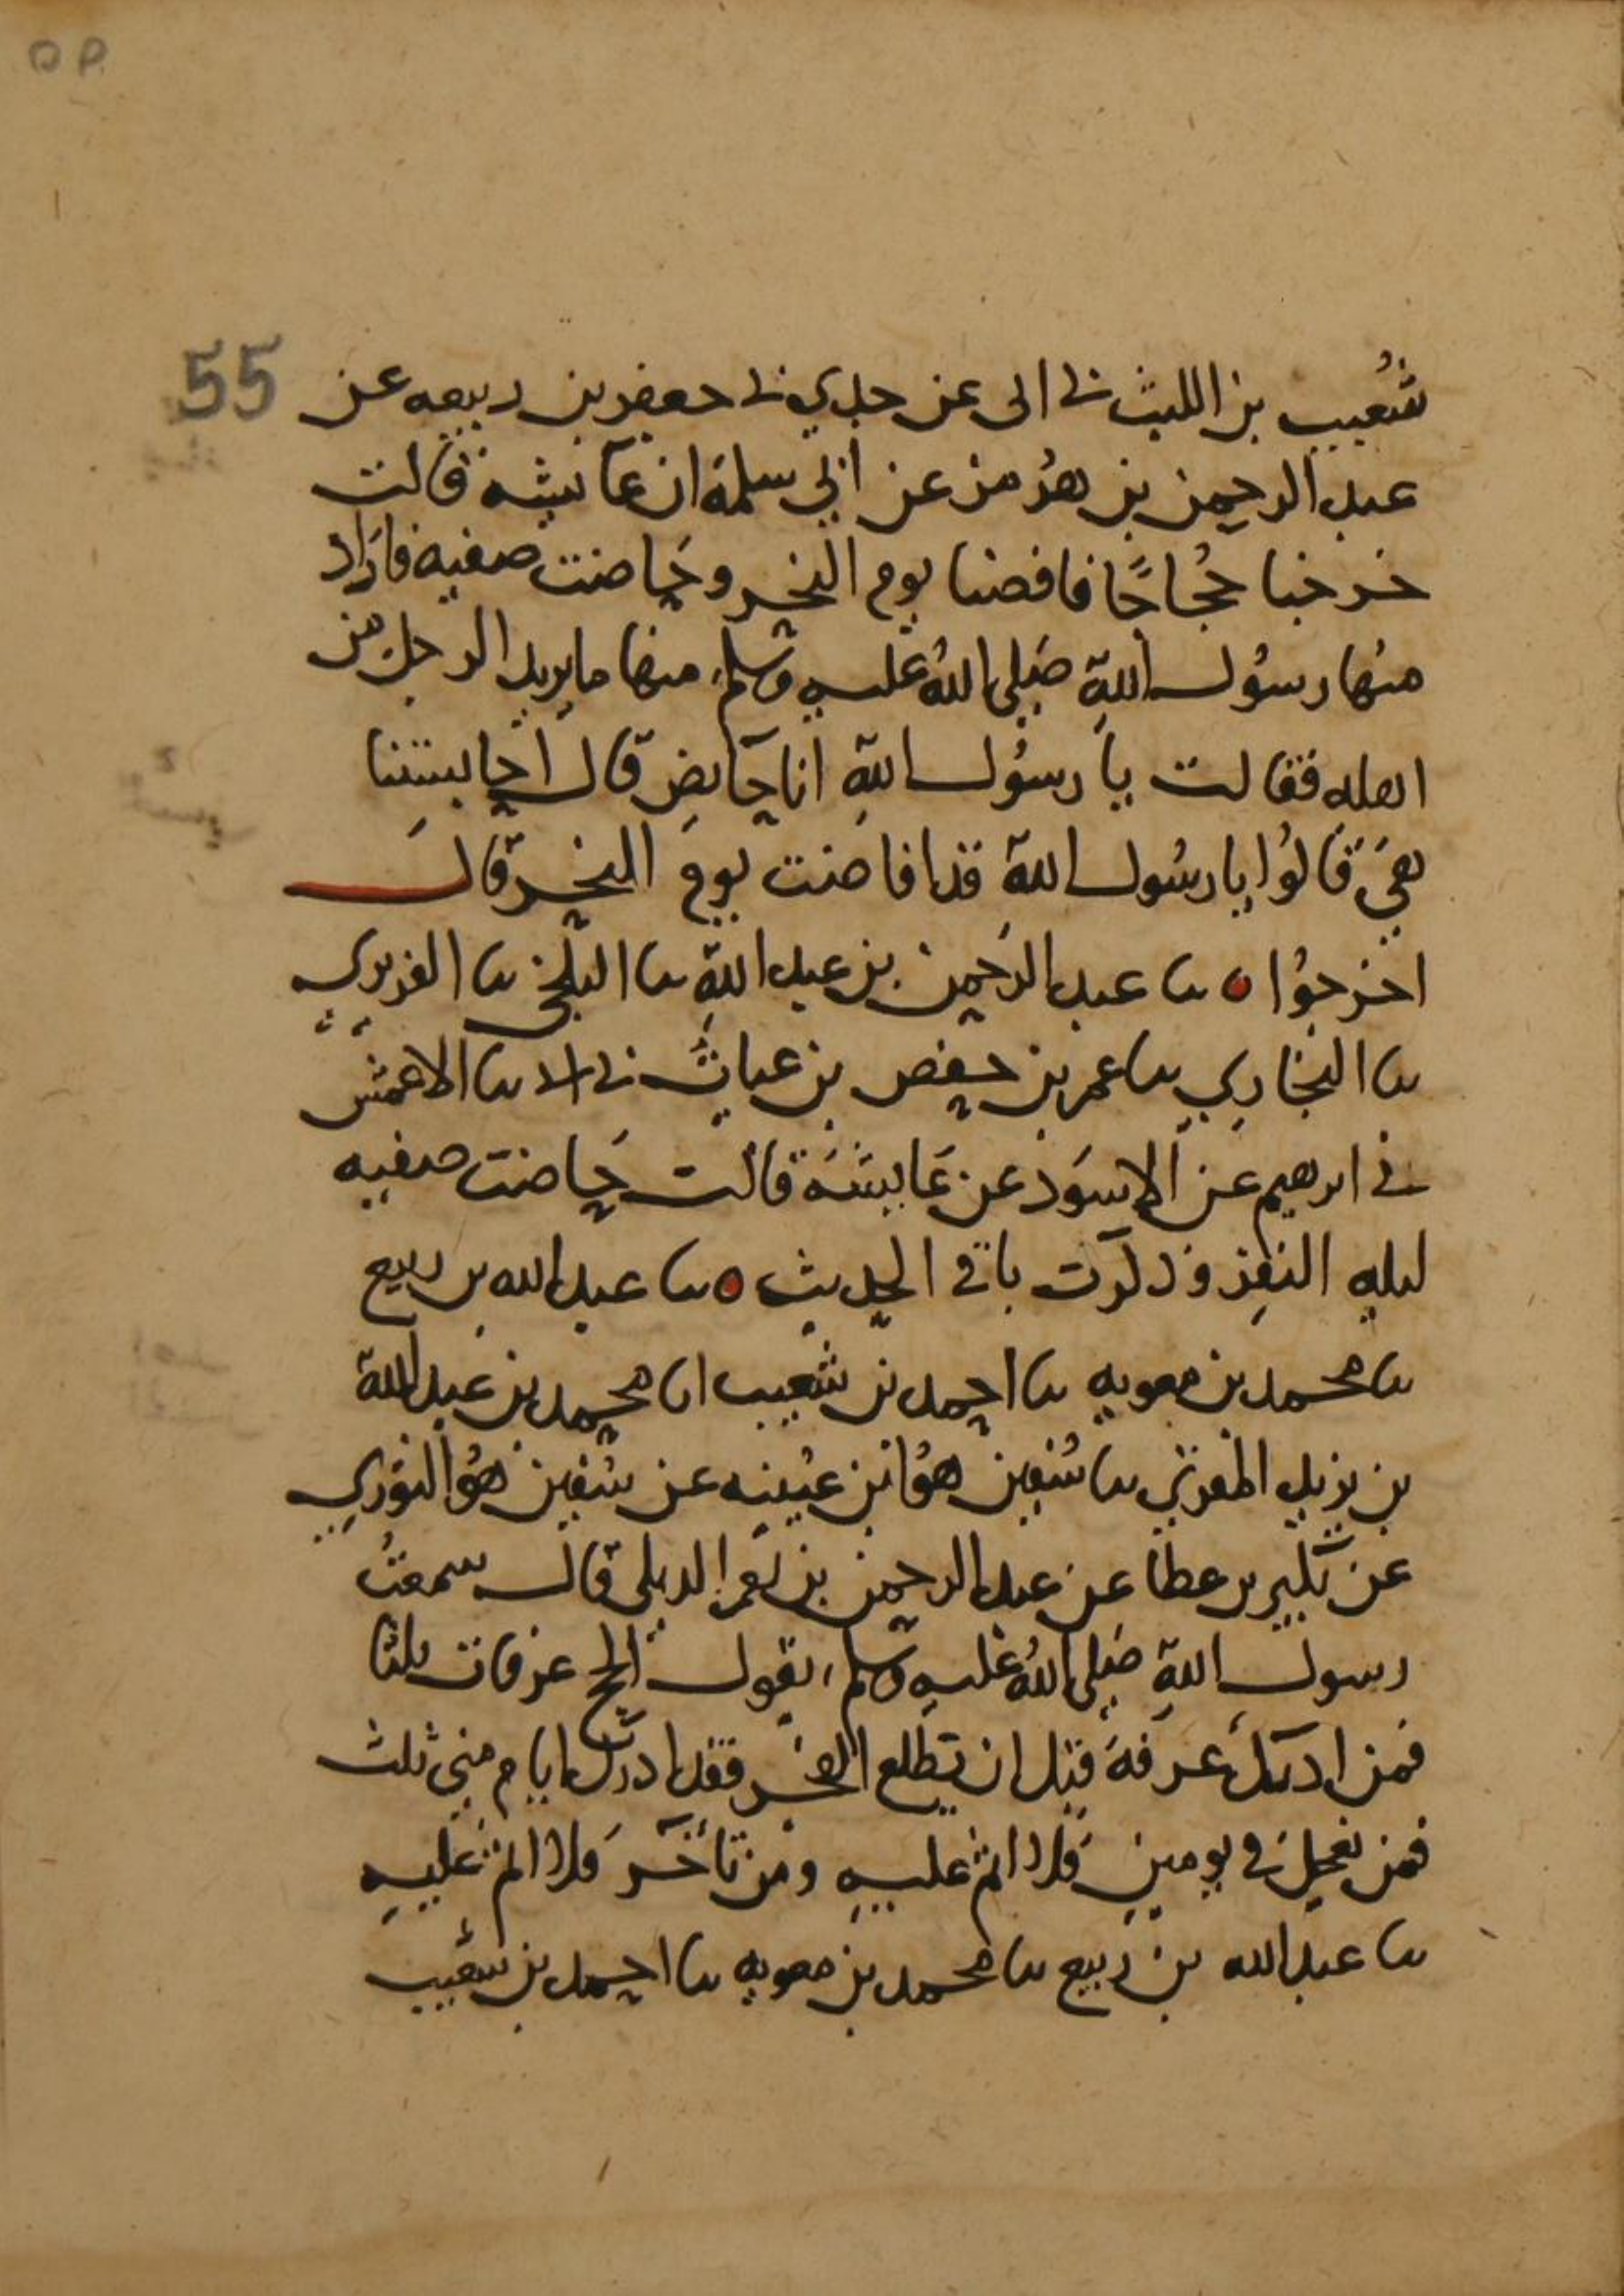 ٥٩
55
شعيب بن الليث نى ابى عن جدي نى جعفر بن ربيعه عن
عبد الرحمن بن هرمز عن ابي سلمة ان عائشه قالت
خرجنا حُجاجًا فافضنا يوم النحر وحاضت صفيه فاراد
منها رسول الله صلى الله عليه وسلم منها ما يريد الرجل من
اهله فقالت يا رسول الله انها حايض قال احابستنا
هي قالوا يا رسول الله قد افاضت يوم النحر قال
اخرجوا ه نا عبد الرحمن بن عبد الله نا البلخي نا الفربري
نا البخاري نا عمر بن حفص بن غياث نى ابى نا الاعمش
نى ابرهيم عن الاسود عن عايشة قالت حاضت صفيه
ليله النفر وذكرت باقي الحديث ه نا عبد الله بن ربيع
نا محمد بن معويه نا احمد بن شعيب انا محمد بن عبد الله
بن يزيد المقرئ نا سُفين هو ابن عيينه عن سفين هو الثوري
عن بكير بن عطا عن عبد الرحمن بن يعمر الديلى قال سمعتُ
رسول الله صلى الله عليه وسلم يقول الحج عرفات ثلثا
فمن ادرك عرفة قبل ان يطلع الفجر فقد ادرك ايام منى ثلث
فمن تعجل في يومين فلا اثم عليه ومن تأخر فلا اثم عليه
نا عبد الله بن ربيع نا محمد بن معويه نا احمد بن شعيب